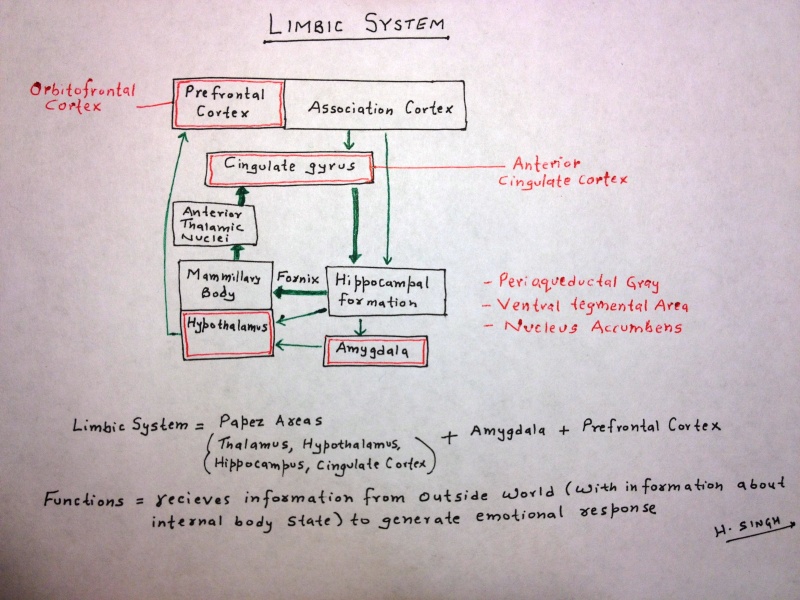 LIMBIC SYSTEM
Orbitofrontal
Cortex
Prefrontal
Cortex
Association Cortex
Cingulate gyrus
Anterior
Cingulate Cortex
Anterior
Thalamic
Nuclei
Mammillary
Body
Fornix
Hippocampal
formation
Hypothalamus
Amygdala
- Periaqueductal Gray
- Ventral tegmental Area
- Nucleus Accumbens
Limbic System = Papez Areas
(Thalamus, Hypothalamus,
Hippocampus, Cingulate Cortex)
+ Amygdala + Prefrontal Cortex
Functions = recieves information from outside world (with information about
internal body state) to generate emotional response
H. SINGH